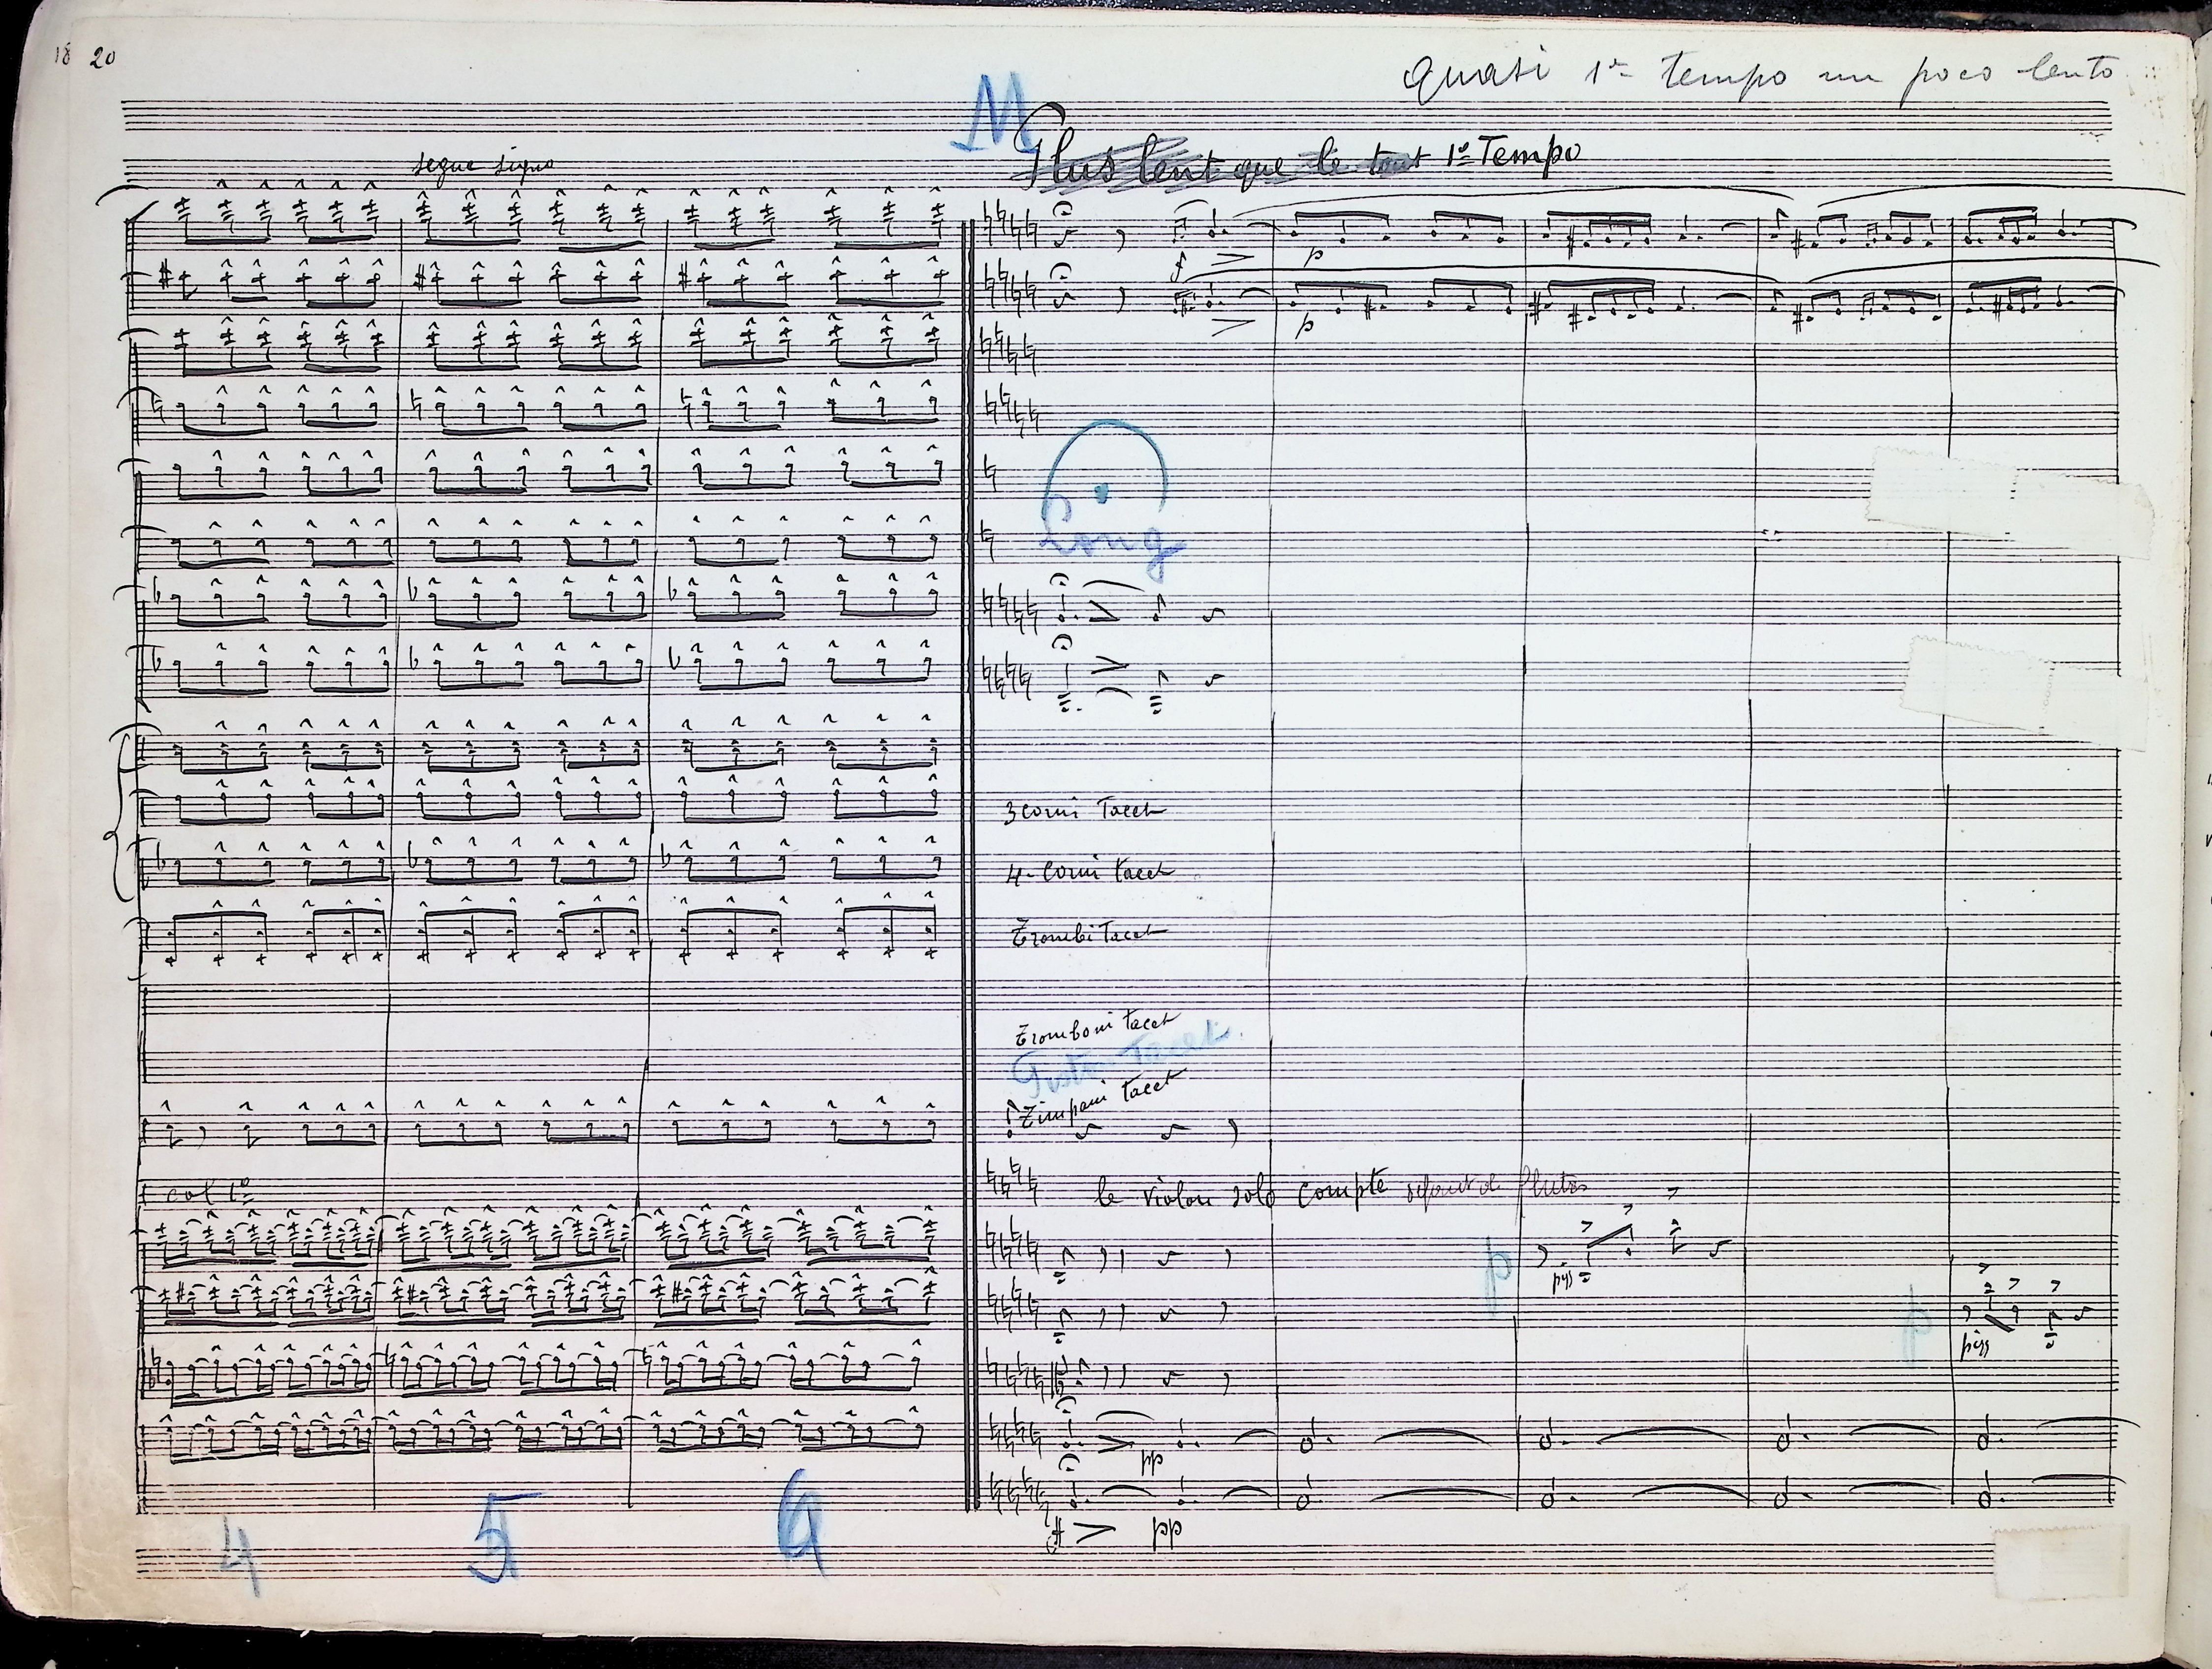 18 20
Quasi 1º tempo un poco lento
M
segue signo
Plus lent que le tout 1º Tempo
f
p
p
Long
3 corni Tacet
4 - Corni tacet
Trombi Tacet
Tromboni tacet
Tacet
Timpani tacet
col 1º
le violon solo compte
p
pizz
p
pizz
pp
pp
4
5
6